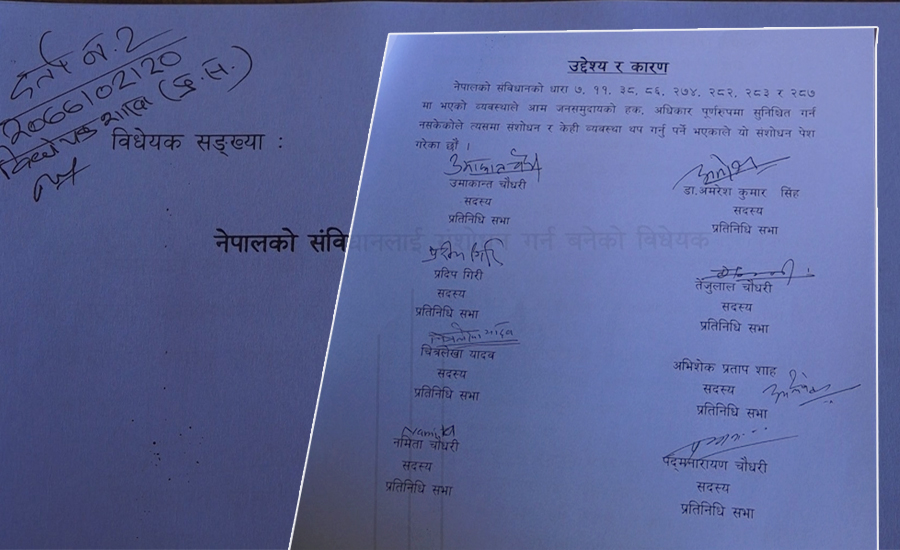 दर्ता नं. २
विधेयक शाखा
विधेयक सङ्ख्या :
नेपालको संविधानलाई संशोधन गर्न बनेको विधेयक
उद्देश्य र कारण
नेपालको संविधानको धारा ७, ११, ३८, ८६, २७४, २८२, २८३ र २८७
मा भएको व्यवस्थाले आम जनसमुदायको हक, अधिकार पूर्णरुपमा सुनिश्चित गर्न
नसकेकोले त्यसमा संशोधन र केही व्यवस्था थप गर्नु पर्ने भएकाले यो संशोधन पेश
गरेका छौं ।
उमाकान्त चौधरी
सदस्य
प्रतिनिधि सभा
डा.अमरेश कुमार सिंह
सदस्य
प्रतिनिधि सभा
प्रदिप गिरि
प्रदिप गिरी
सदस्य
प्रतिनिधि सभा
तेजुलाल चौधरी
सदस्य
प्रतिनिधि सभा
चित्रलेखा यादव
चित्रलेखा यादव
सदस्य
प्रतिनिधि सभा
अभिशेक प्रताप शाह
सदस्य
प्रतिनिधि सभा
Namita
नमिता चौधरी
सदस्य
प्रतिनिधि सभा
पद्मनारायण चौधरी
सदस्य
प्रतिनिधि सभा